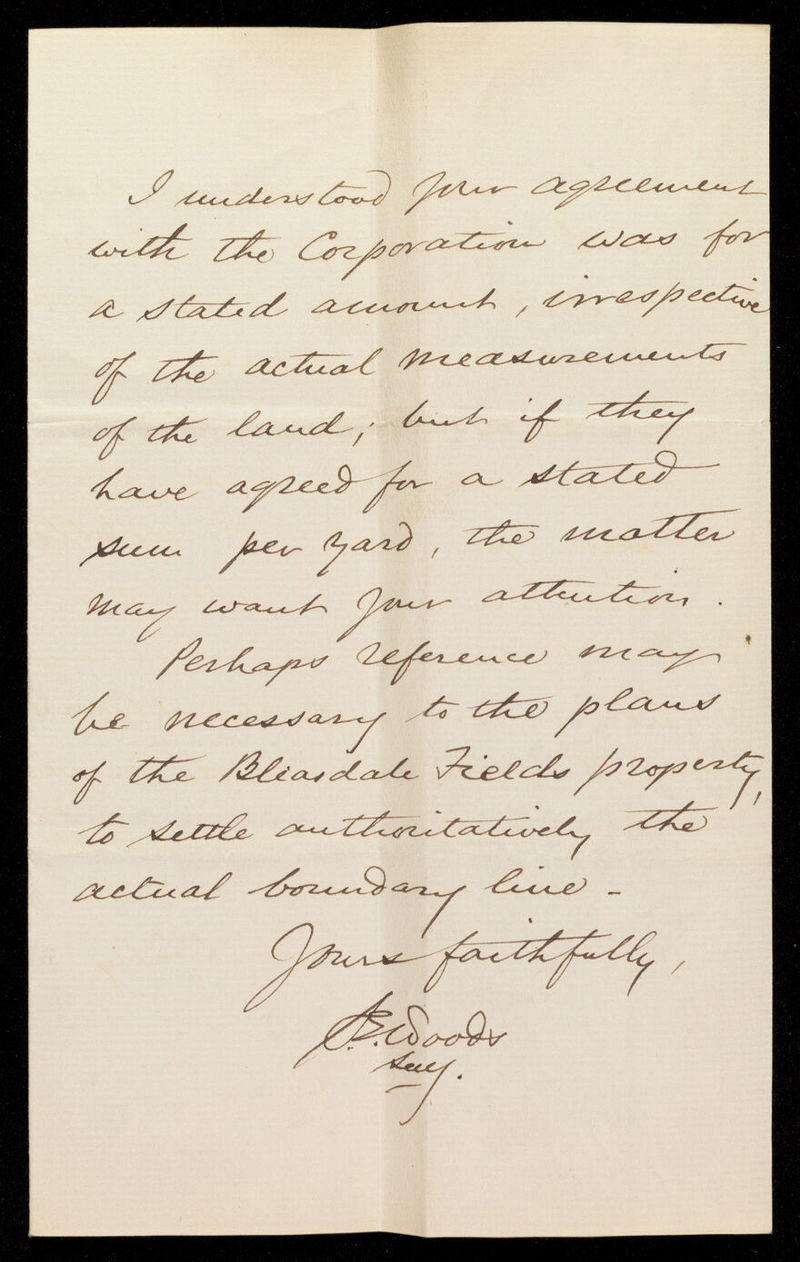 I understood your agreement
with the Corporation was for
a stated amount, irrespective
of the actual measurements
of the land; but if they
have agreed for a stated
sum per yard, the matter
may want your attention.
Perhaps reference may
be necessary to the plans
of the Bleasdale Fields property,
to settle authoritatively the
actual boundary line -
Yours faithfully,
Woods
Secy.